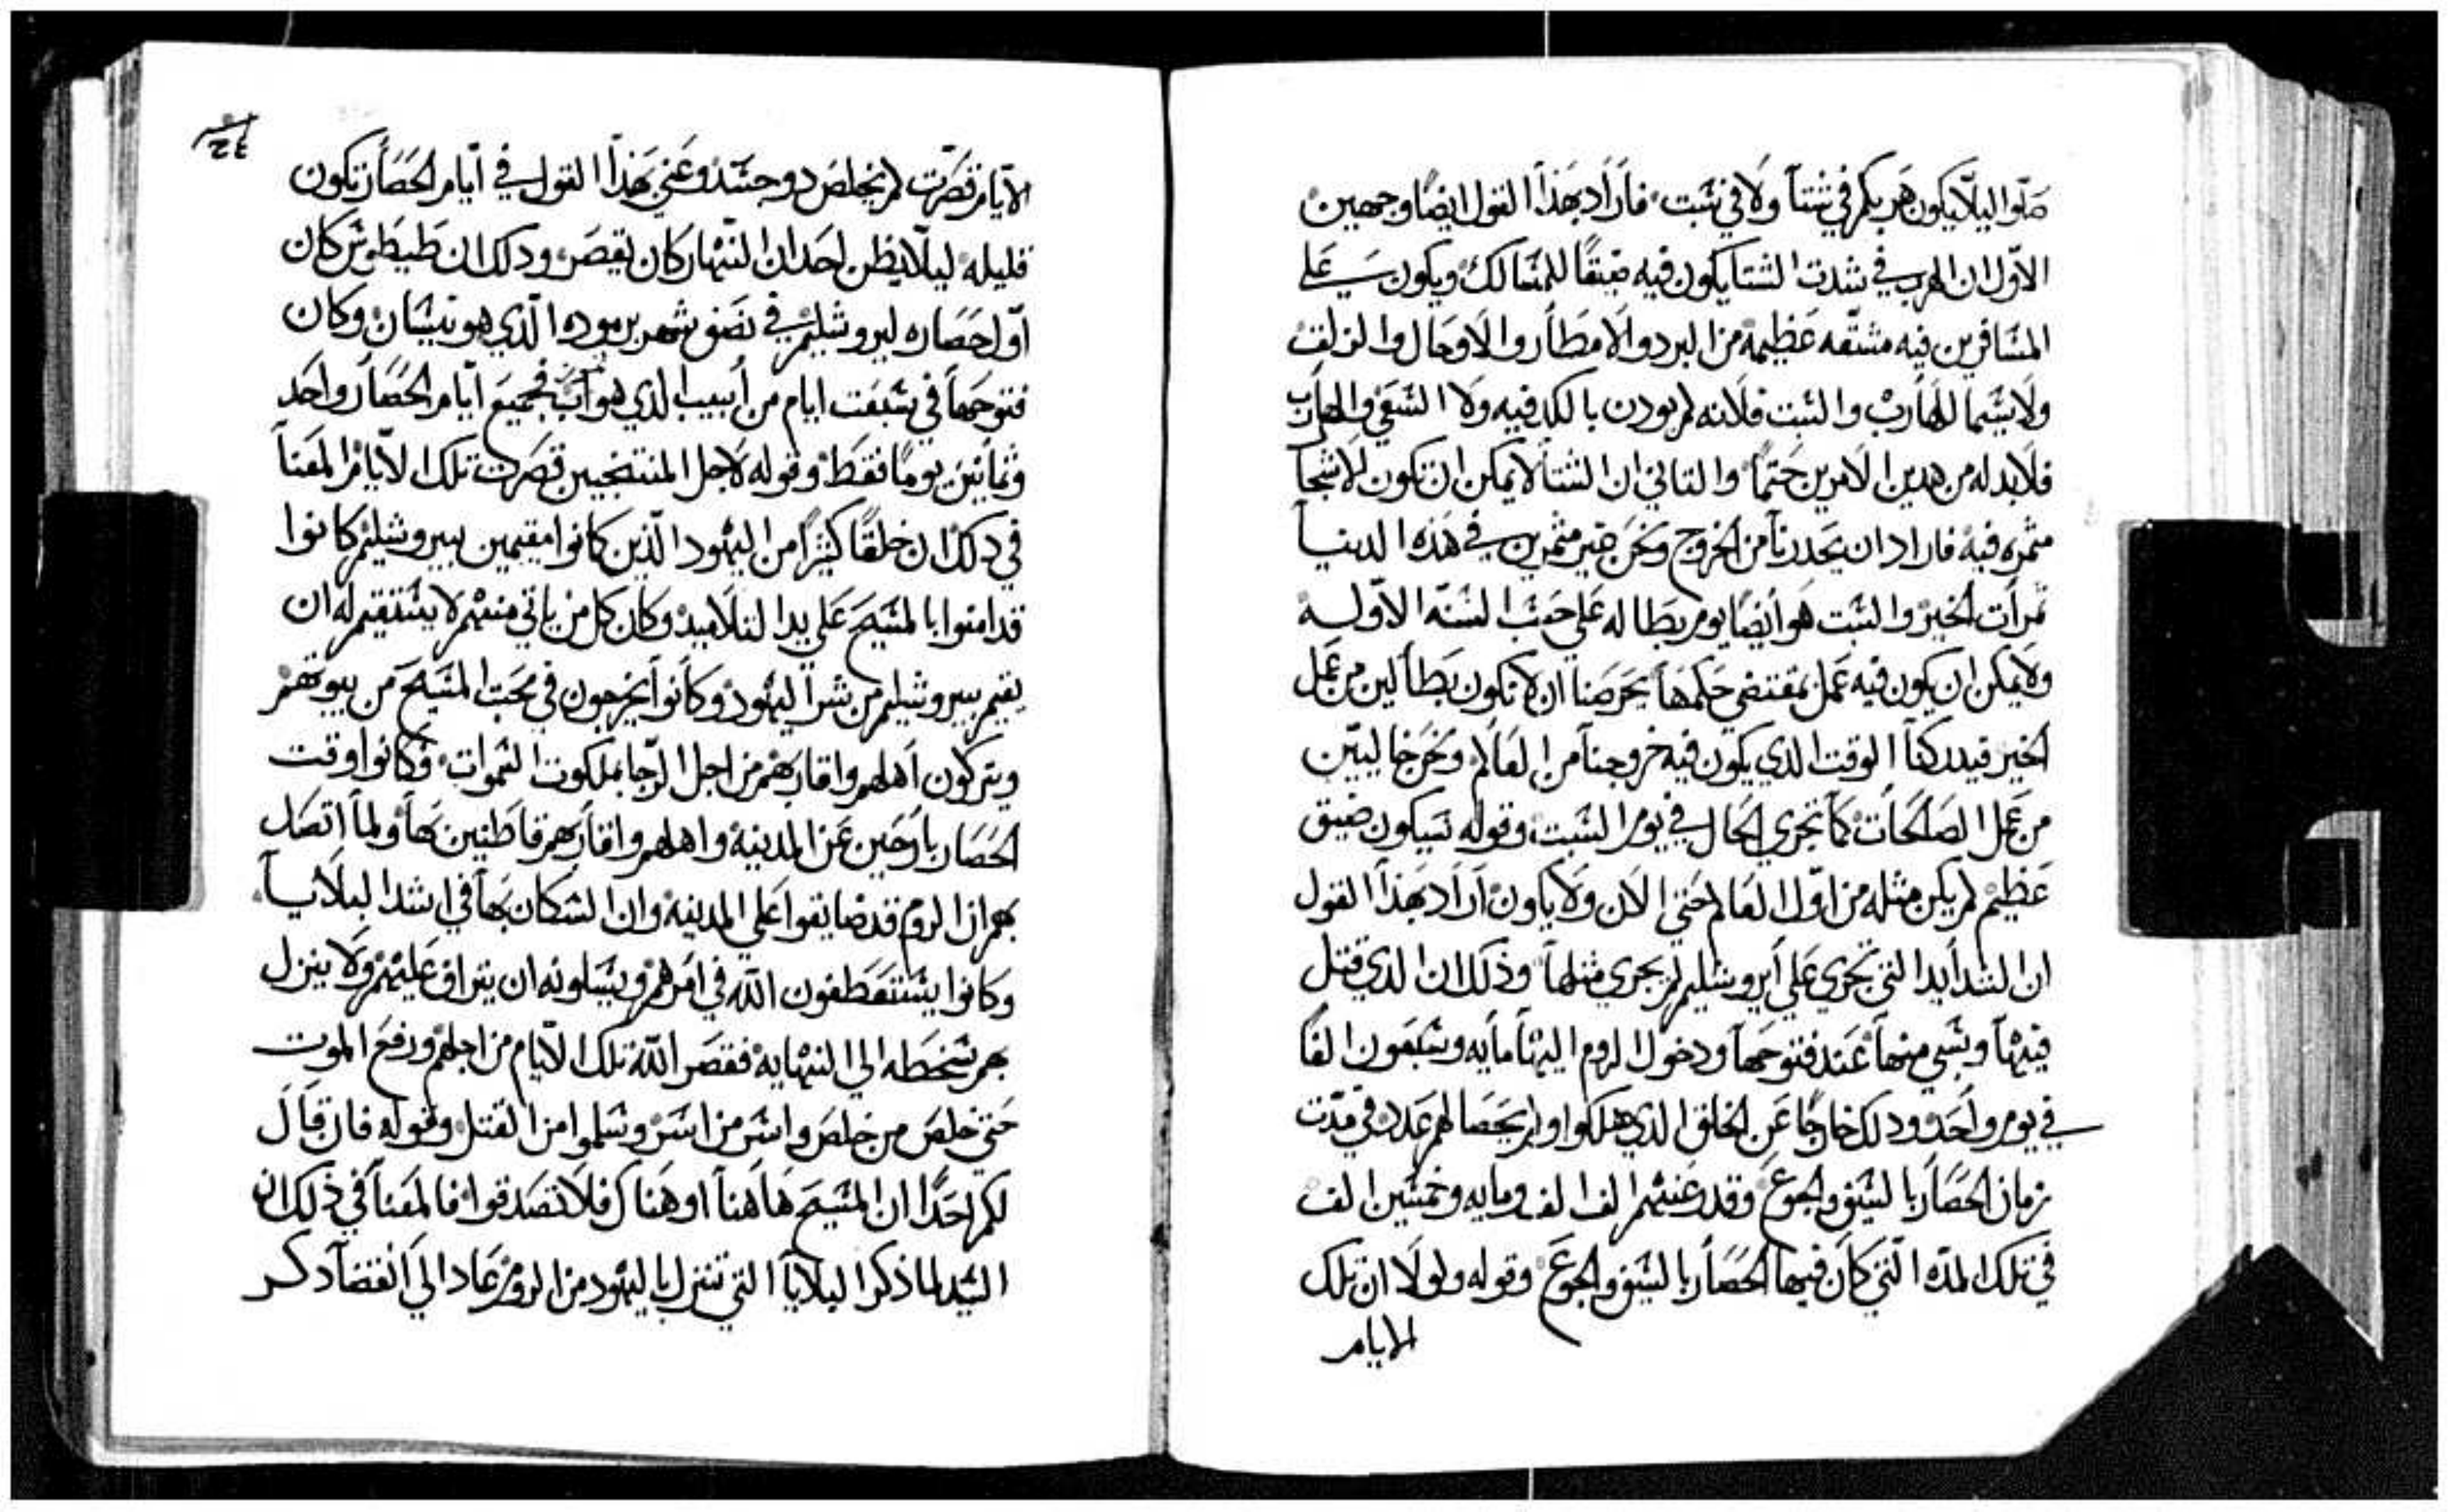 صلوا ليلا يكون هربكم في شتا ولا في سبت فاراد بهذا القول ايضا وجهين
الاول ان الهرب في شدت الشتا يكون فيه ضيقا للمسالك ويكون على
المسافرين فيه مشقه عظيمة من البرد والامطار والاوحال والزلق
ولا سيما للهارب والسبت فلانه لم يودن بالكد فيه ولا السعي والهارب
فلا بد له من هدين الامرين حتما والتاني ان الشتا لا يمكن ان تكون الاشجا
مثمره فيه فاراد ان يحدرنا من الخروج ونحن غير مثمرين في هذه الدنيا
ثمرات الخير والسبت هو ايضا يوم بطاله على حسب السنة الاوله
ولا يمكن ان يكون فيه عمل بمقتضي حكمها يحرصنا ان لا نكون بطالين من عمل
الخير فيدركنا الوقت الدي يكون فيه خروجنا من العالم ونخرج خاليين
من عمل الصالحات كما تجري الحال في يوم السبت وقوله سيكون ضيق
عظيم لم يكن مثله من اول العالم حتي الان ولا يكون اراد بهذا القول
ان الشدايد التي تجري على ايروشليم لم يجري مثلها وذلك ان الدي قتل
فيها وسبي منها عند فتوحها ودخول الروم اليها مايه وسبعون الفا
في يوم واحد ودلك خارجا عن الخلق الدي هلكوا ولم يحصا لهم عدد في مدت
زمان الحصار بالسيف والجوع وقد عنيهم الف الف ومايه وخمسين الف
في تلك المده التي كان فيها الحصار بالسيف والجوع وقوله ولولا ان تلك
الايام
٢٤
الايام قصرت لم يخلص دو جسد وعني بهذا القول في ايام الحصار تكون
قليله ليلا يظن احد ان النهار كان يقصر ودلك ان طيطوش كان
اول حصاره ليروشليم في نصف شهر برموده الذي هو نيسان وكان
فتوحها في سبعت ايام من ابيب الدي هو اب فجميع ايام الحصار واحد
وثمانين يوما فقط وقوله لاجل المنتجبين قصرت تلك الايام المعنا
في دلك ان خلقا كثيرا من اليهود الذين كانوا مقيمين بيروشليم كانوا
قد امنوا بالمسيح على يد التلاميد وكان كل من ياتي منهم لا يستقيم له ان
يقيم بيروشليم من شر اليهود وكانوا يخرجون في محبت المسيح من بيوتهم
ويتركون اهلهم واقاربهم من اجل الرجا بملكوت السموات وكانوا وقت
الحصار بارحين عن المدينة واهلهم واقاربهم قاطنين بها ولما اتصل
بهم ان الروم قد ضايقوا على المدينة وان السكان بها في اشد البلايا
وكانوا يستعطفون الله في امرهم ويسلونه ان يتراف عليهم ولا ينزل
بهم سخطه الى النهايه فقصر الله تلك الايام من اجلهم ورفع الموت
حتي خلص من خلص واسر من اسر وسلموا من القتل وقوله فان قال
لكم احدا ان المسيح هاهنا او هناك فلا تصدقوا فالمعنا في ذلك ان
السيد لما ذكر البلايا التي تنزل باليهود من الروم عاد الي انقضا دكر